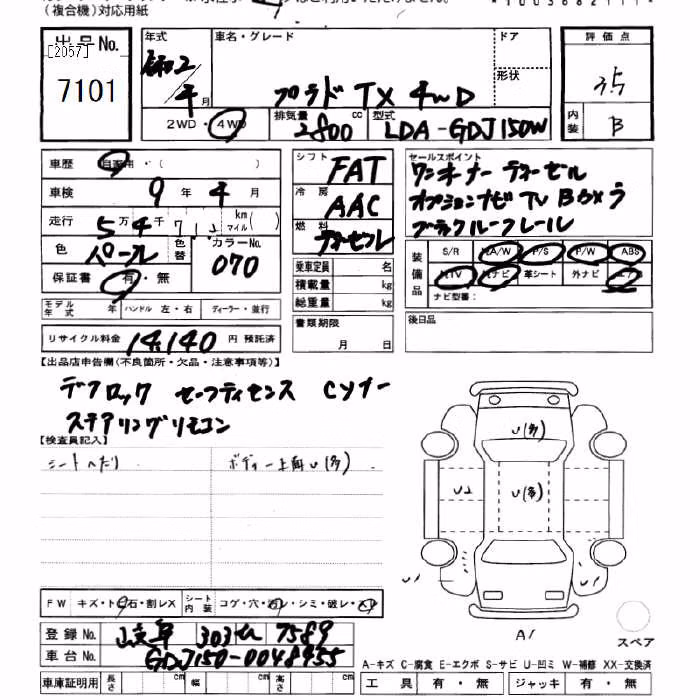 (複合機)対応用紙
出品No.
[2057]
7101
年式
令和2年
4月
車名・グレード
ドア
形状
プラド TX 4WD
2WD・4WD
排気量
2800 cc
型式
LDA-GDJ150W
評価点
3.5
内装
B
車歴 自家用・( )
車検 9年 4月
走行 5万 4千 km マイル ( )
色 パール 色替
カラーNo. 070
保証書 有・無
シフト FAT
冷房 AAC
燃料 ディーゼル
乗車定員 名
積載量 kg
総重量 kg
セールスポイント
ワンオーナー ディーゼル
オプションナビ TV
ブラックルーフレール
装備品
S/R A/W P/S P/W ABS
TV ナビ 革シート 外ナビ エアB
ナビ型番:
モデル年式 年 ハンドル 左・右 ディーラー・並行
リサイクル料金 14,140 円 預託済
書類期限
月 日
後日品
【出品店申告欄(不良箇所・欠品・注意事項等)】
デフロック セーフティセンス Cソナー
ステアリングリモコン
【検査員記入】
シートヘたり
ボディー上面U(多)
U(多)
U2
U(多)
U1
U1
A1
スペア
FW キズ・トビ石・割レX
シート内装 コゲ・穴・汚レ・シミ・破レ・スレ
登録No. 岐阜 303 せ 7589
車台No. GDJ150-0048955
車庫証明用 長さ cm 幅 cm 高さ cm
A-キズ C-腐食 E-エクボ S-サビ U-凹ミ W-補修 XX-交換済
工具 有・無 ジャッキ 有・無